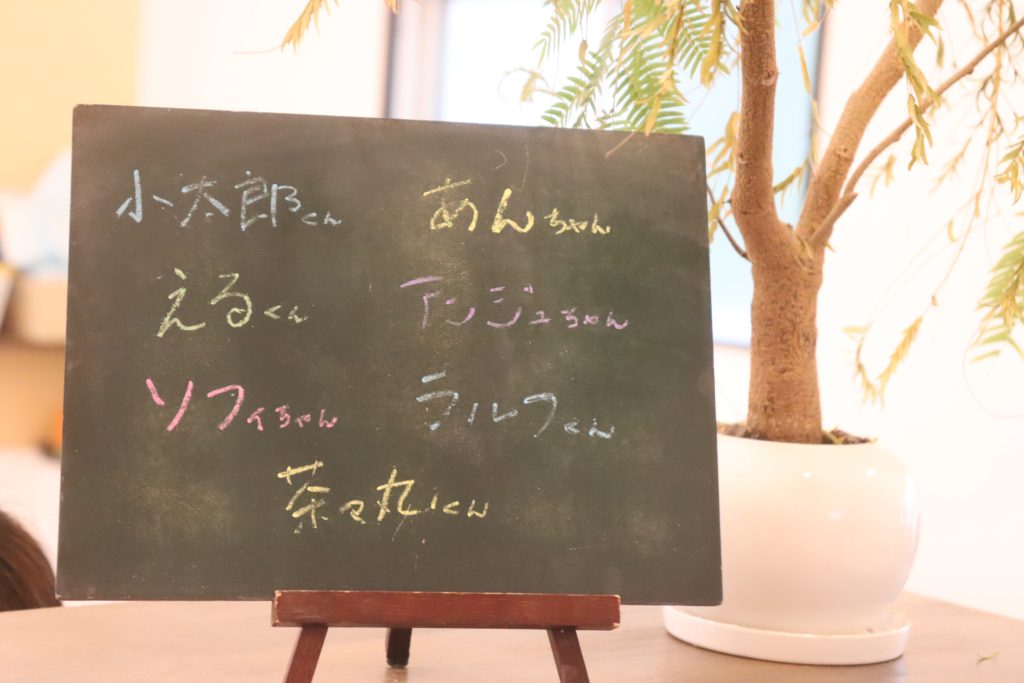 小太郎くん
あんちゃん
えるくん
アンジュちゃん
ソフィちゃん
ラルフくん
茶々丸くん